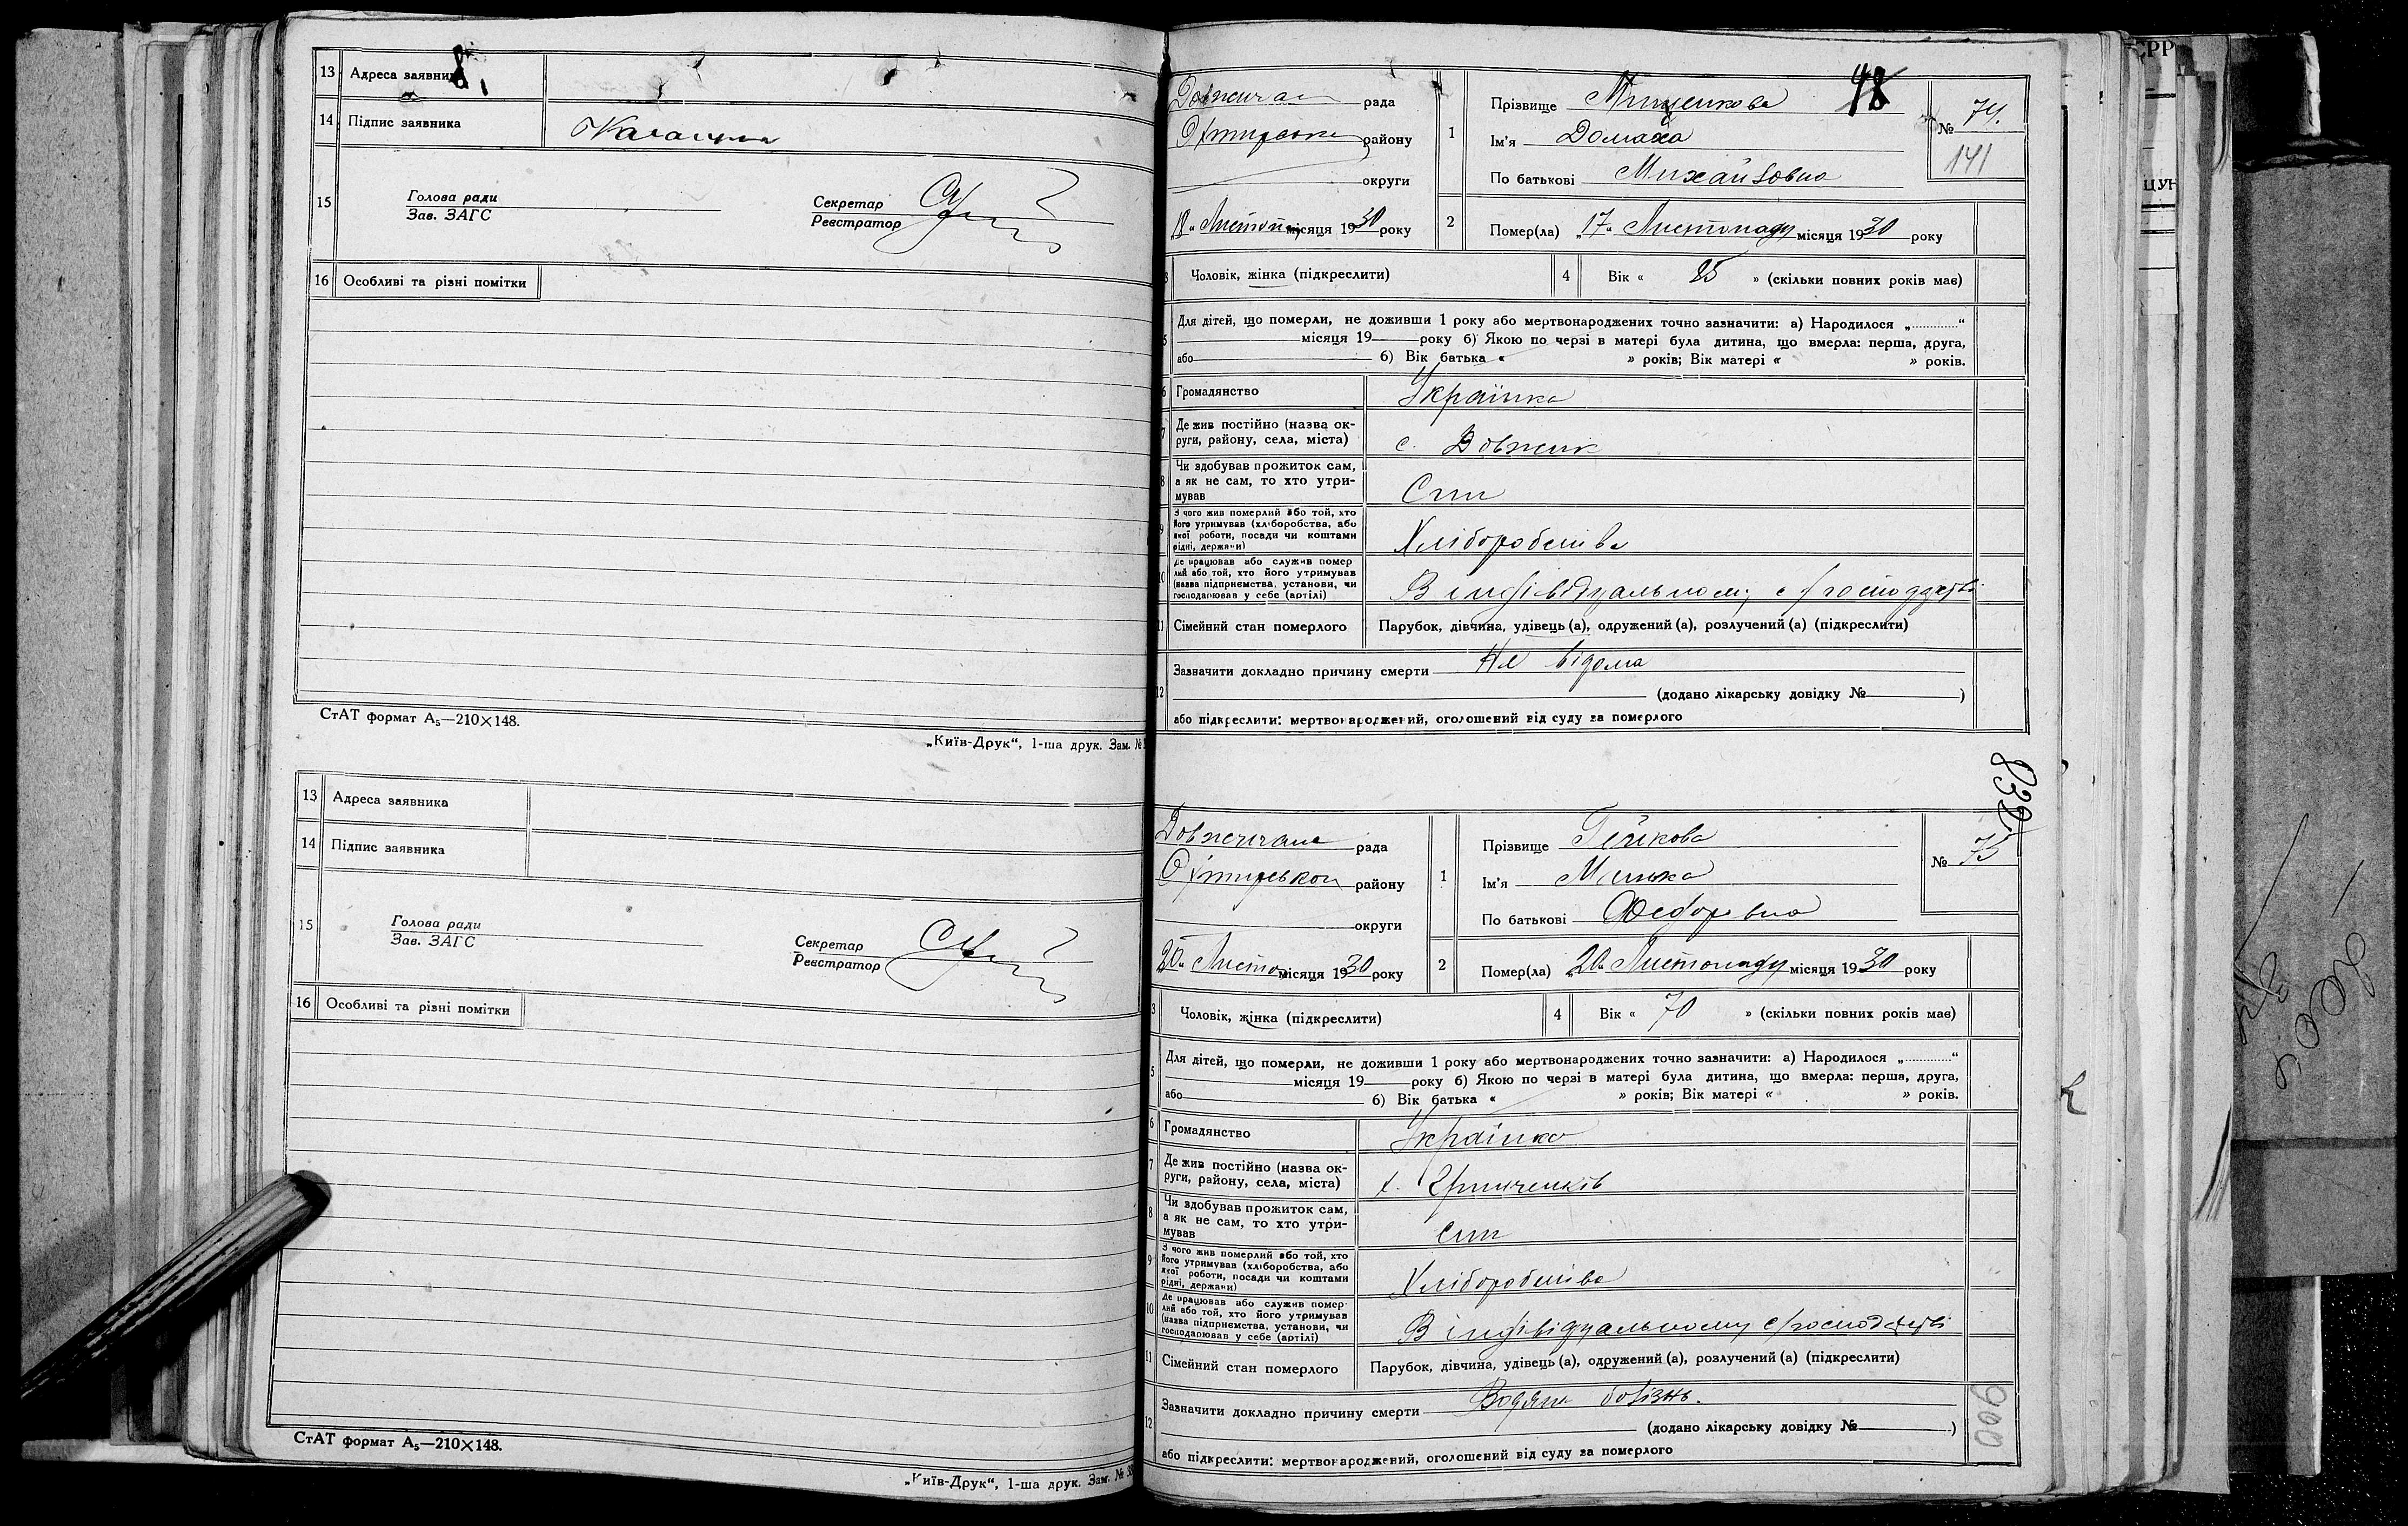 13 Адреса заявника
8.
14 Підпис заявника
15 Голова ради
Зав. ЗАГС
Секретар
Реєстратор
16 Особливі та різні помітки
СтАТ формат А₅—210×148.
„Київ-Друк“, 1-ша друк. Зам. №
13 Адреса заявника
14 Підпис заявника
15 Голова ради
Зав. ЗАГС
Секретар
Реєстратор
16 Особливі та різні помітки
СтАТ формат А₅—210×148.
„Київ-Друк“, 1-ша друк. Зам. №
48
рада
району
округи
18 місяця 1930 року
1 Прізвище Мищенкова
Ім'я Домаха
По батькові Михайловна
№ 74.
141
2 Помер(ла) „17“ Листопаду місяця 1930 року
3 Чоловік, жінка (підкреслити)
4 Вік « 85 » (скільки повних років має)
5 Для дітей, що померли, не доживши 1 року або мертвонароджених точно зазначити: а) Народилося „............“
місяця 19 року б) Якою по черзі в матері була дитина, що вмерла: перша, друга,
або б) Вік батька « » років; Вік матері « » років.
6 Громадянство Українка
7 Де жив постійно (назва ок-
руги, району, села, міста) с. Довжик
8 Чи здобував прожиток сам,
а як не сам, то хто утри-
мував Син
9 З чого жив померлий або той, хто
його утримував (хліборобства, або
якої роботи, посади чи коштами
рідні, держави) Хліборобства
10 Де працював або служив помер
лий або той, хто його утримував
(назва підприємства, установи, чи
господарював у себе (артілі) В індівідуальному с/господарстві
11 Сімейний стан померлого Парубок, дівчина, удівець (а), одружений (а), розлучений (а) (підкреслити)
12 Зазначити докладно причину смерти Не відома
(додано лікарську довідку № )
або підкреслити: мертвонароджений, оголошений від суду за померлого
832
рада
району
округи
„20“ місяця 1930 року
1 Прізвище Гейкова
Ім'я
По батькові Федоровна
№ 75
2 Помер(ла) „20“ Листопаду місяця 1930 року
3 Чоловік, жінка (підкреслити)
4 Вік « 70 » (скільки повних років має)
5 Для дітей, що померли, не доживши 1 року або мертвонароджених точно зазначити: а) Народилося „............“
місяця 19 року б) Якою по черзі в матері була дитина, що вмерла: перша, друга,
або б) Вік батька « » років; Вік матері « » років.
6 Громадянство Українка
7 Де жив постійно (назва ок-
руги, району, села, міста) х. Гринченків
8 Чи здобував прожиток сам,
а як не сам, то хто утри-
мував син
9 З чого жив померлий або той, хто
його утримував (хліборобства, або
якої роботи, посади чи коштами
рідні, держави) Хліборобства
10 Де працював або служив помер
лий або той, хто його утримував
(назва підприємства, установи, чи
господарював у себе (артілі) В індівідуальному с/господарстві
11 Сімейний стан померлого Парубок, дівчина, удівець (а), одружений (а), розлучений (а) (підкреслити)
12 Зазначити докладно причину смерти Водяна болізнь.
(додано лікарську довідку № )
або підкреслити: мертвонароджений, оголошений від суду за померлого
900